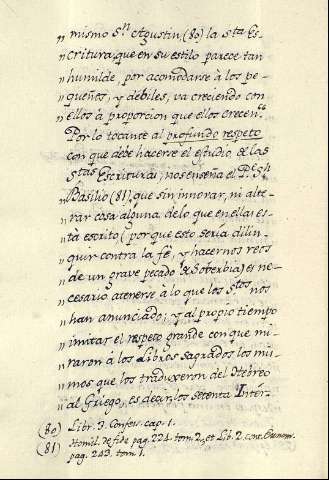 „ mismo Sⁿ Agustin, (80) la Sta Es-
„ critura, que en su estilo parece tan
„ humilde, por acomodarse à los pe-
„ queños, y débiles, va creciendo con
„ ellos à proporcion que ellos crecen.“
Por lo tocante al profundo respeto
„ con que debe hacerse el estudio de las
„ Stas Escrituras, nos enseña el P. Sⁿ
„ Basilio (81) que sin innovar, ni alte-
„ rar cosa alguna de lo que en ellas es-
„ tà escrito (por que esto seria delin-
„ quir contra la fé, y hacernos reos
„ de un grave pecado de Soberbia) es ne-
„ cesario atenerse à lo que los Stos nos
„ han anunciado; y al propio tiempo
„ imitar el respeto grande con que mi-
„ raron à los Libros Sagrados los mis-
„ mos que los traduxeron del Hebreo
„ al Griego, es decir, los Setenta Intér-
(80) Libr. 3. Confess. cap. 1.
(81) Homil. de fide pag. 224. tom. 2. et Lib. 2. cont. Eunom.
pag. 243. tom. 1.